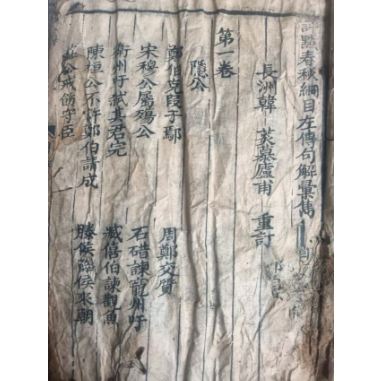 評點春秋綱目左傳句解彙雋
長洲韓菼慕廬甫 重訂
第一卷
隱公
鄭伯克段于鄢 周鄭交質
宋穆公屬殤公 石碏諫寵州吁
衛州吁弒其君完 臧僖伯諫觀魚
陳桓公不許鄭伯請成 滕侯薛侯來朝
公戒飭守臣